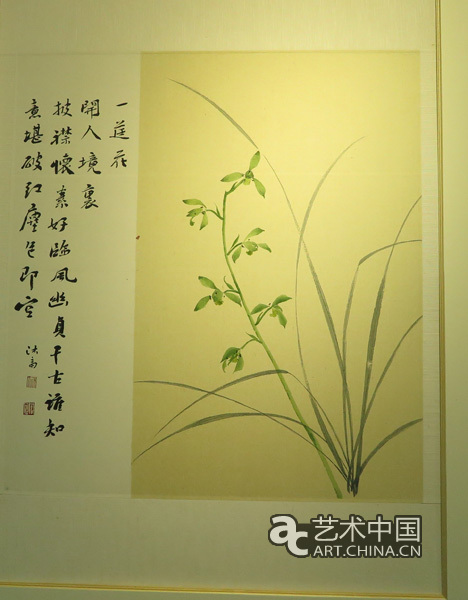 一莛花
開人境裏
披襟懷素好臨風幽貞千古誰知
意堪破紅塵色即空
艺术中国
ART.CHINA.CN